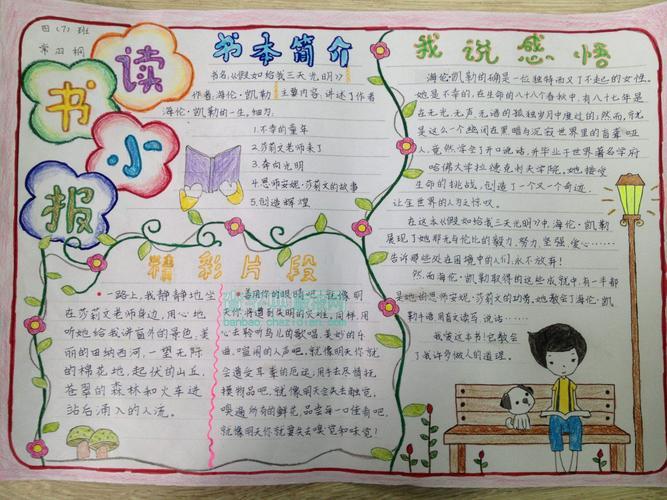 四(7)班
常羽桐
读书小报
书本简介
书名:《假如给我三天光明》
作者:海伦·凯勒 主要内容:讲述了作者
海伦·凯勒的一生,细为:
1.不幸的童年
2.莎莉文老师来了
3.奔向光明
4.恩师安妮·莎莉文的故事
5.创造辉煌
精彩片段
一路上,我静静地坐
在莎莉文老师身边,用心地
听她给我讲窗外的景色,美
丽的田纳西河,一望无际
的棉花地,起伏的山丘,
苍翠的森林和火车进
站后涌入的人流。
善用你的眼睛吧!就像明
天你将遭到失明的灾难。同样,用
心去聆听鸟儿的歌唱,美妙的乐
曲,喧闹的人声吧,就像明天你就
会遭受耳聋的厄运,用手去尽情抚
摸物品吧,就像明天会失去触觉,
嗅遍所有的鲜花,品尝每一口佳肴吧,
就像明天你就要失去嗅觉和味觉!
我说感悟
海伦·凯勒的确是一位独特而又了不起的女性。
她是不幸的,在生命的八十八个春秋中,有八十七年是
在无光、无声、无语的孤独岁月中度过的;然而,
是这么一个幽闭在黑暗与沉寂世界里的盲聋哑
人,竟然学会了开口说话,并毕业于世界著名学府
哈佛大学拉德克利夫学院。她接受
生命的挑战,创造了一个又一个奇迹,
让全世界的人为之惊叹。
在这本《假如给我三天光明》中,海伦·凯勒
展现了她那无与伦比的毅力、努力、坚强、爱心……
告诉那些处在困境中的人们,永不放弃!
然而海伦·凯勒取得的这些成就中,有一半都
是她的恩师安妮·莎莉文的功劳,她教会了海伦·凯
勒手语,用盲文读写,说话……
我爱这本书!它教会
了我许多做人的道理。
banbao.chazidian.com